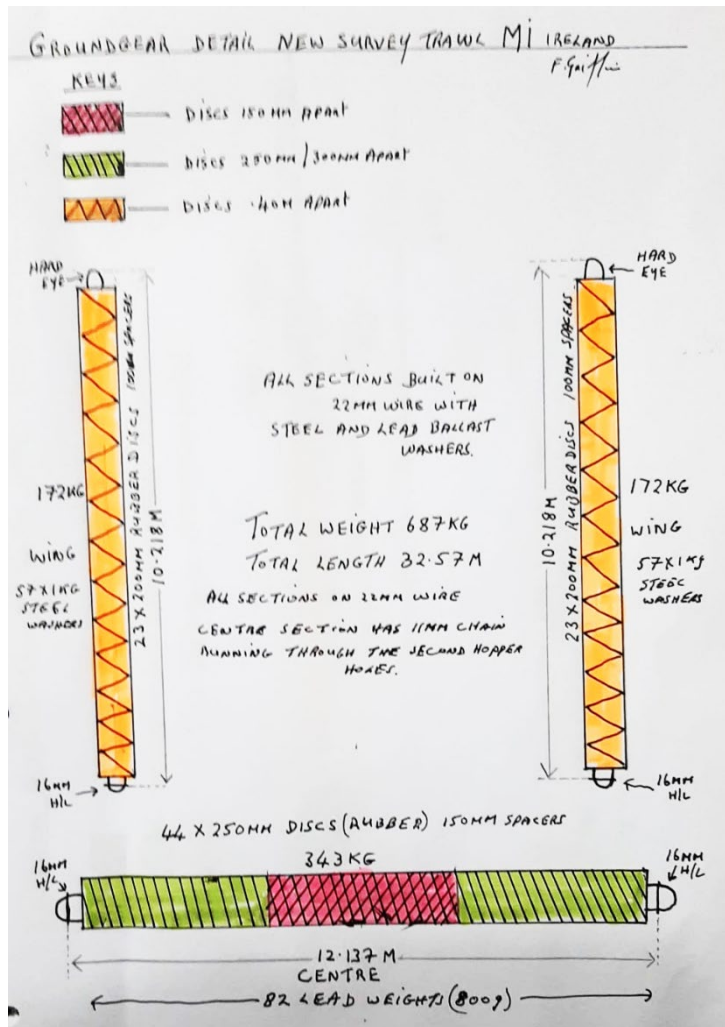 GROUNDGEAR DETAIL NEW SURVEY TRAWL MI IRELAND
F. Griffin
KEYS
DISCS 150MM APART
DISCS 250MM/300MM APART
DISCS .40M APART
HARD EYE
23 X 200MM RUBBER DISCS 100MM SPACERS
10.218M
172KG
WING
57X1KG
STEEL
WASHERS
16MM
H/L
ALL SECTIONS BUILT ON
22MM WIRE WITH
STEEL AND LEAD BALLAST
WASHERS.
TOTAL WEIGHT 687KG
TOTAL LENGTH 32.57M
ALL SECTIONS ON 22MM WIRE
CENTRE SECTION HAS 11MM CHAIN
RUNNING THROUGH THE SECOND HOPPER
HOLES.
HARD
EYE
10.218M
23 X 200MM RUBBER DISCS 100MM SPACERS
172KG
WING
57X1KG
STEEL
WASHERS
16MM
H/L
44 X 250MM DISCS (RUBBER) 150MM SPACERS
343KG
16MM
H/L
16MM
H/L
12.137M
CENTRE
82 LEAD WEIGHTS (800g)